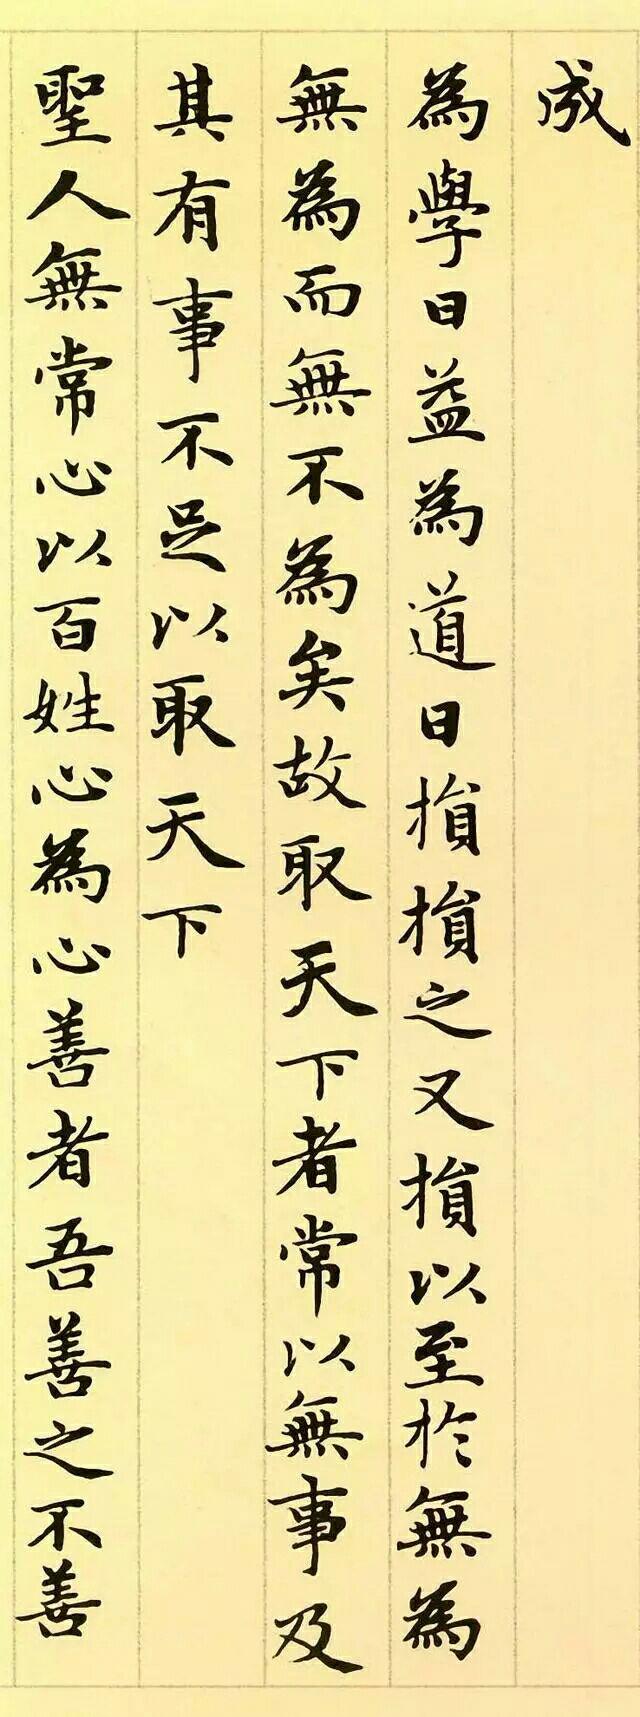 成
為學日益為道日損損之又損以至於無為
無為而無不為矣故取天下者常以無事及
其有事不足以取天下
聖人無常心以百姓心為心善者吾善之不善